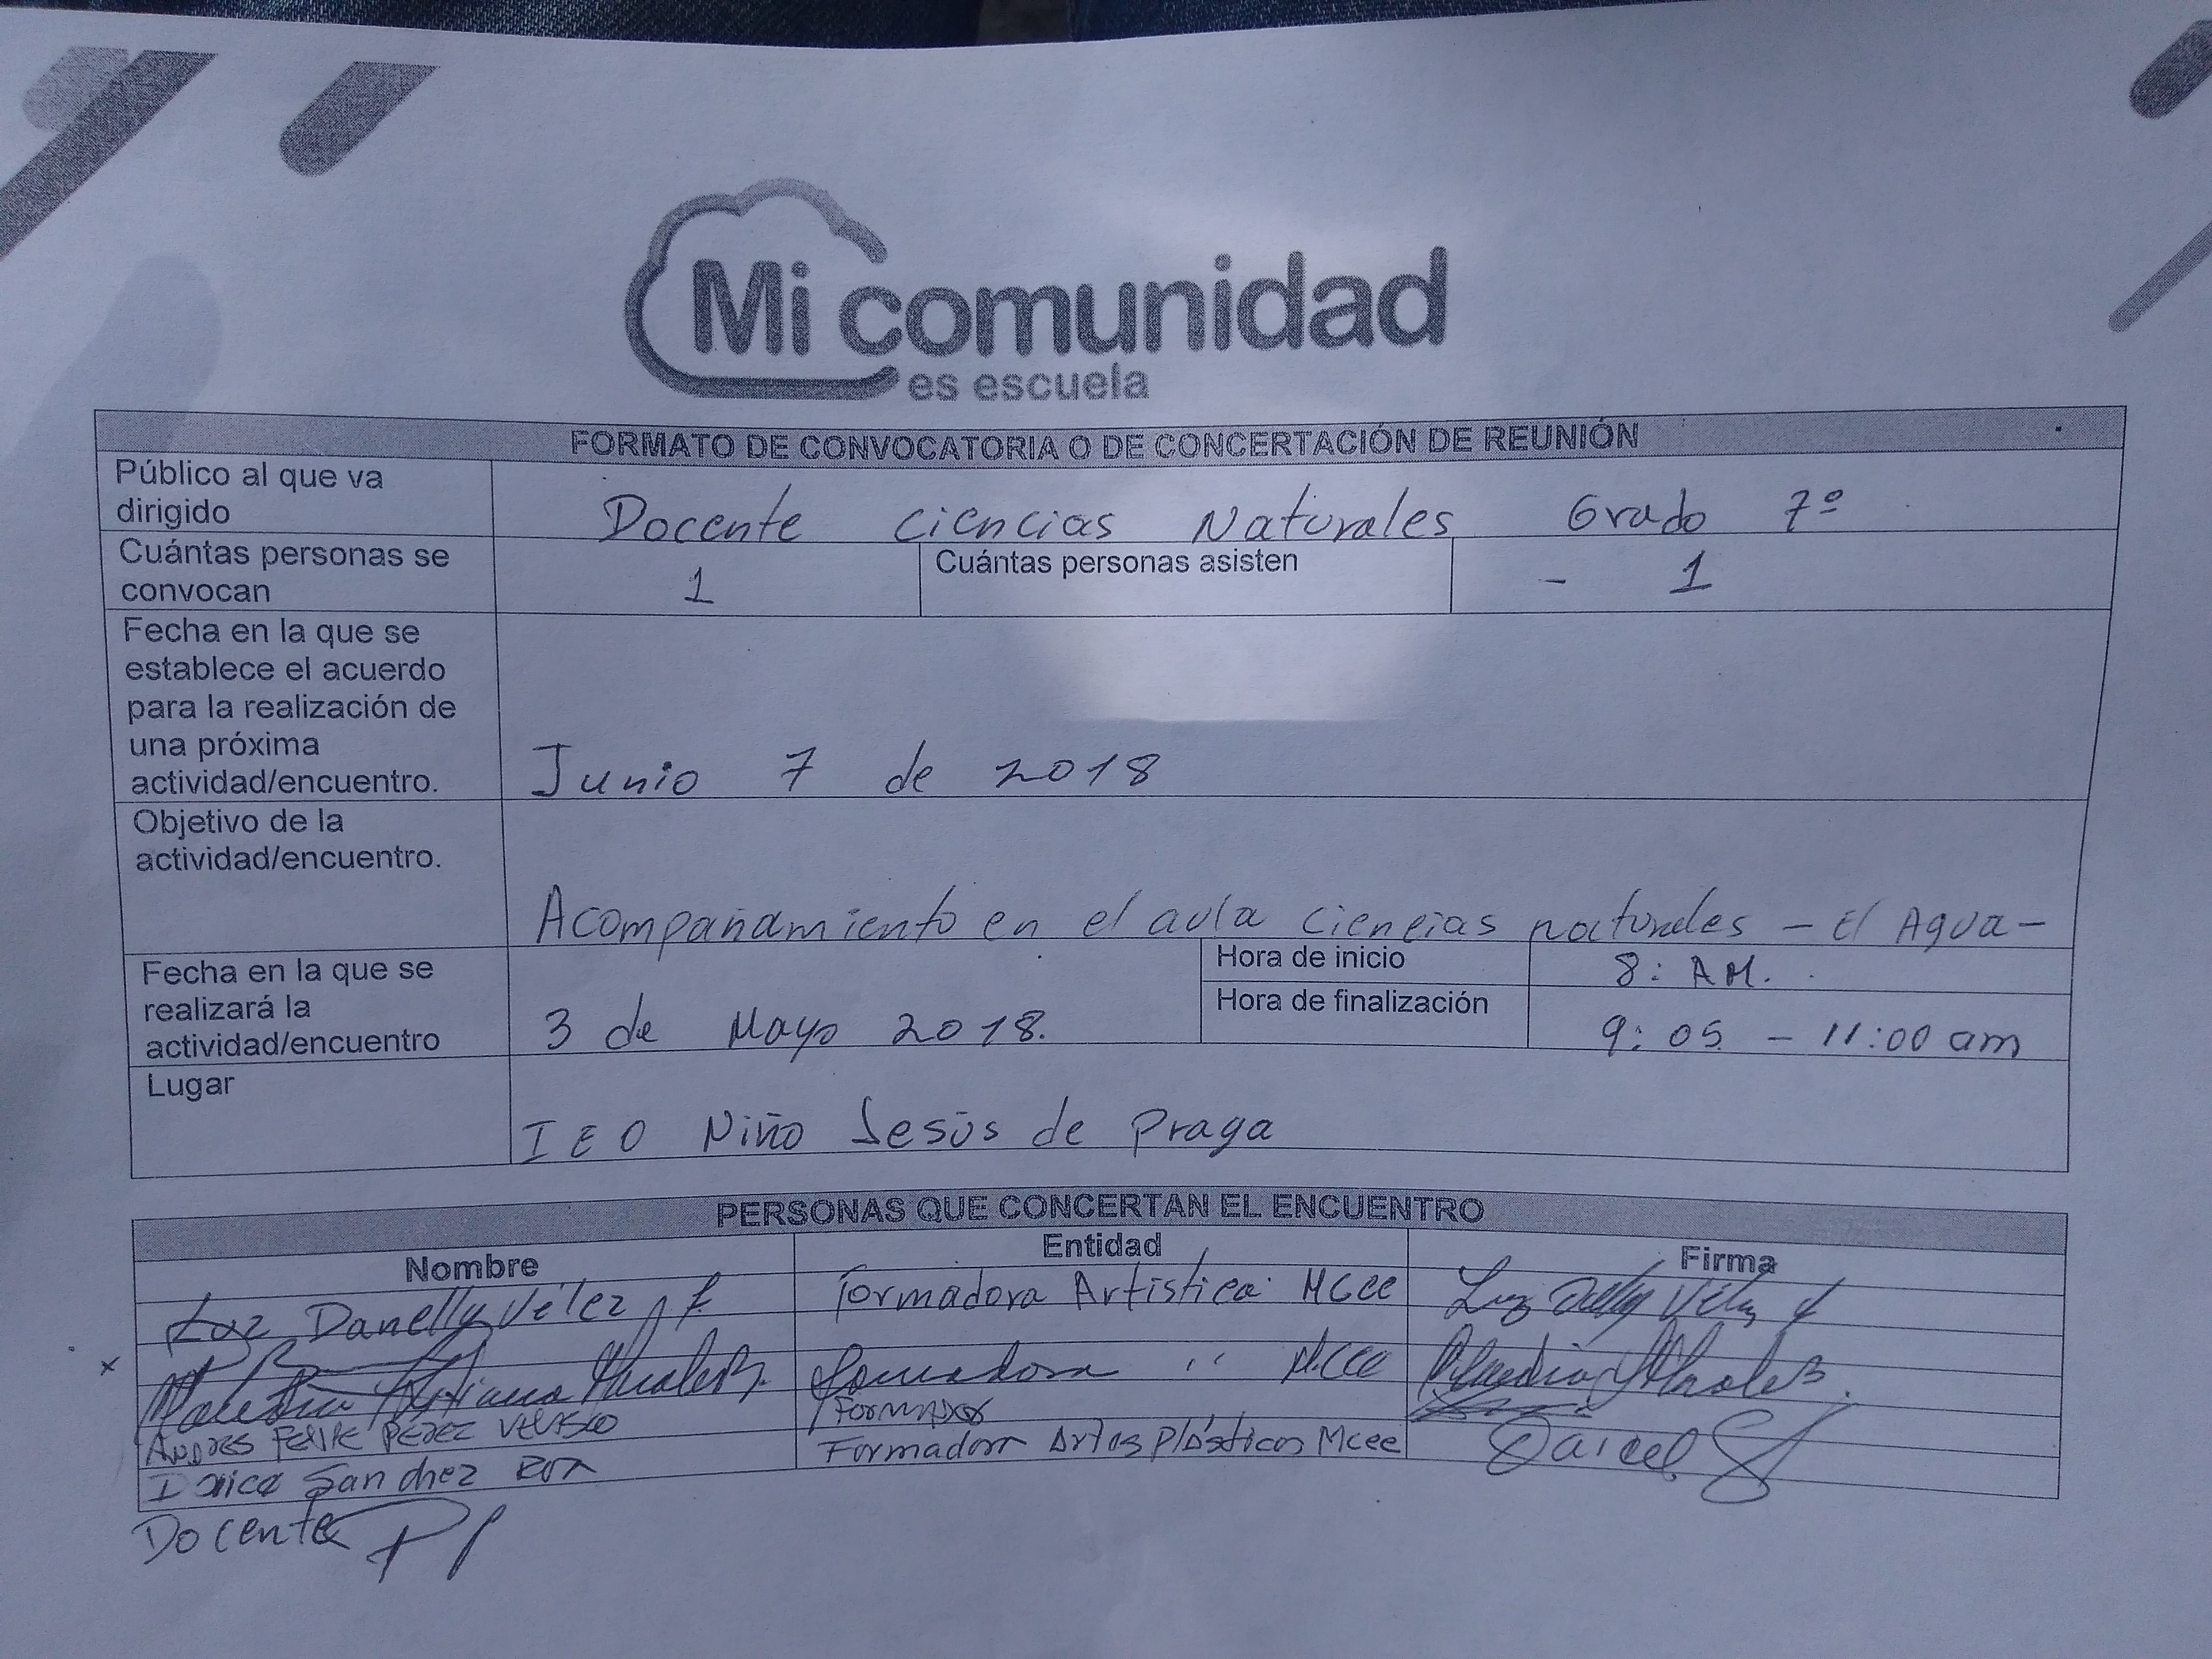 Mi comunidad
es escuela
FORMATO DE CONVOCATORIA O DE CONCERTACIÓN DE REUNIÓN
Público al que va
dirigido
Docente Ciencias Naturales Grado 7º
Cuántas personas se
convocan
1
Cuántas personas asisten
- 1
Fecha en la que se
establece el acuerdo
para la realización de
una próxima
actividad/encuentro.
Junio 7 de 2018
Objetivo de la
actividad/encuentro.
Acompañamiento en el aula ciencias naturales - El Agua -
Fecha en la que se
realizará la
actividad/encuentro
3 de Mayo 2018.
Hora de inicio
8: AM.
Hora de finalización
9:05 - 11:00 am
Lugar
IEO Niño Jesús de Praga
PERSONAS QUE CONCERTAN EL ENCUENTRO
Nombre Entidad Firma
Luz Danelly Vélez Formadora Artística MCEE Luz Vélez
Formadora '' MCEE
ANDRES FELIPE PÉREZ VELASCO Formador
Sanchez Formadora Artes Plásticas Mcee
Docente